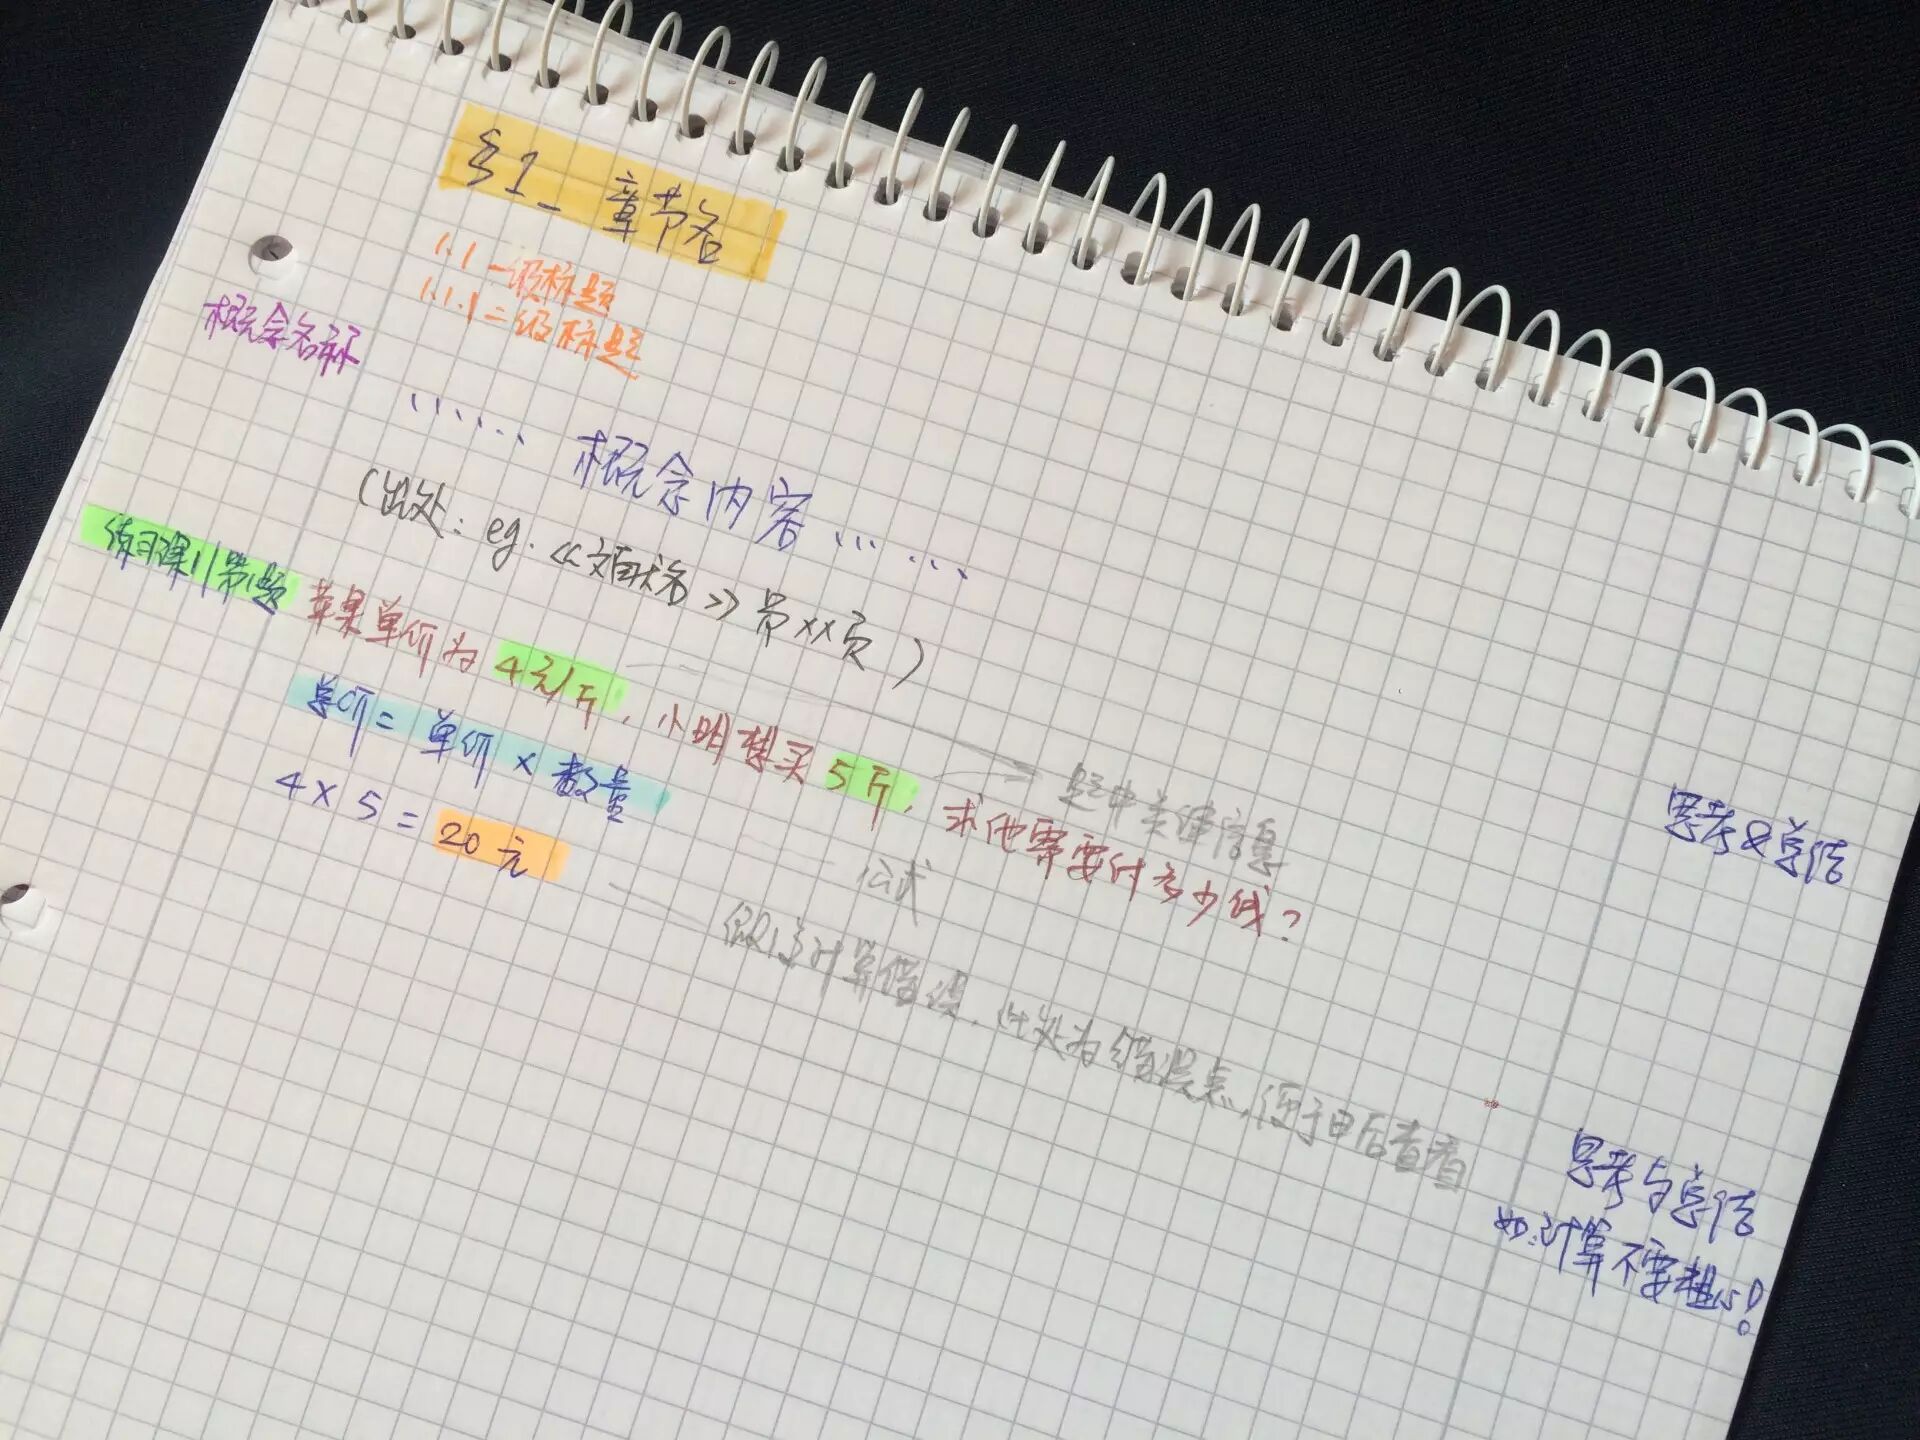 §1_ 章节名
1.1 一级标题
1.1.1 二级标题
概念名称
...... 概念内容 ... ...
(出处: eg. 《文献名》第××页)
练习课1|第1题
苹果单价为4元/斤, 小明想买5斤, 求他需要付多少钱?
题中关键信息
总价 = 单价 × 数量
公式
4 × 5 = 20 元
假设计算错误, 此处为错误点, 便于日后查看
思考&总结
思考与总结
如:计算不要粗心!